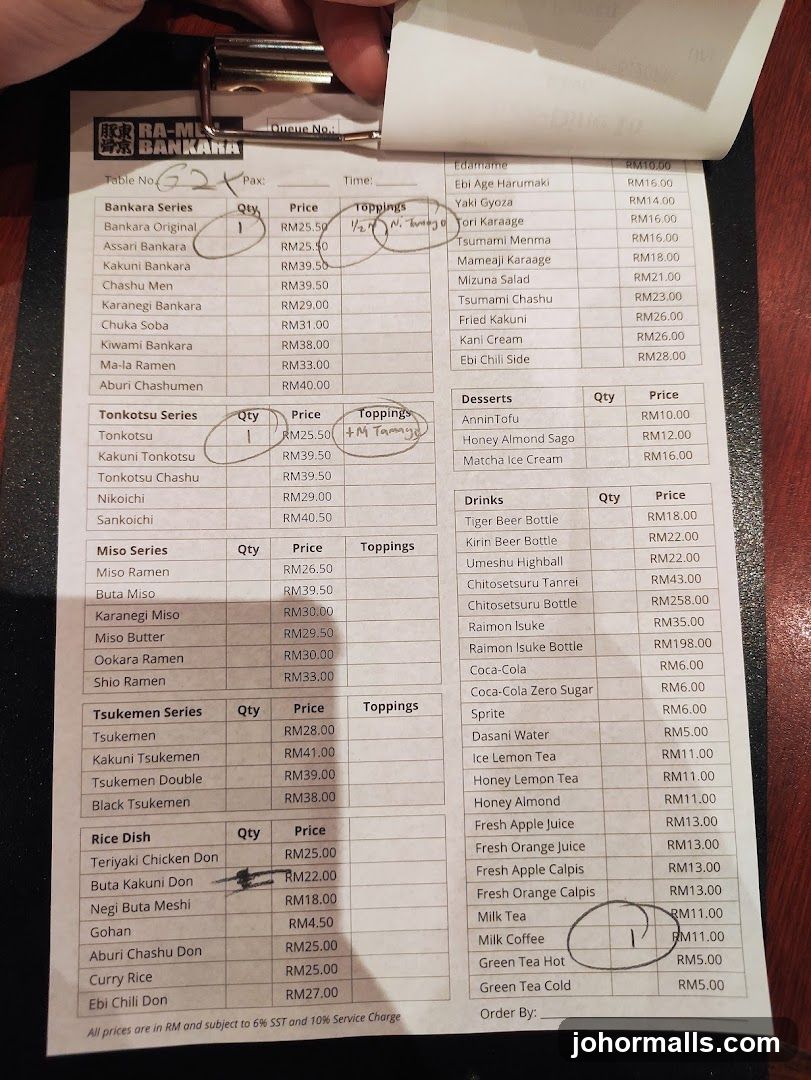 豚骨 東京
RA-MEN
BANKARA
Queue No.:
Table No. G2X Pax: ______ Time: ______
Bankara Series Qty Price Toppings
Bankara Original 1 RM25.50 1/2 N. Tamago
Assari Bankara RM25.50
Kakuni Bankara RM39.50
Chashu Men RM39.50
Karanegi Bankara RM29.00
Chuka Soba RM31.00
Kiwami Bankara RM38.00
Ma-la Ramen RM33.00
Aburi Chashumen RM40.00
Tonkotsu Series Qty Price Toppings
Tonkotsu 1 RM25.50 +N Tamago
Kakuni Tonkotsu RM39.50
Tonkotsu Chashu RM39.50
Nikoichi RM29.00
Sankoichi RM40.50
Miso Series Qty Price Toppings
Miso Ramen RM26.50
Buta Miso RM39.50
Karanegi Miso RM30.00
Miso Butter RM29.50
Ookara Ramen RM30.00
Shio Ramen RM33.00
Tsukemen Series Qty Price Toppings
Tsukemen RM28.00
Kakuni Tsukemen RM41.00
Tsukemen Double RM39.00
Black Tsukemen RM38.00
Rice Dish Qty Price
Teriyaki Chicken Don RM25.00
Buta Kakuni Don RM22.00
Negi Buta Meshi RM18.00
Gohan RM4.50
Aburi Chashu Don RM25.00
Curry Rice RM25.00
Ebi Chili Don RM27.00
All prices are in RM and subject to 6% SST and 10% Service Charge
Edamame RM10.00
Ebi Age Harumaki RM16.00
Yaki Gyoza RM14.00
Tori Karaage RM16.00
Tsumami Menma RM16.00
Mameaji Karaage RM18.00
Mizuna Salad RM21.00
Tsumami Chashu RM23.00
Fried Kakuni RM26.00
Kani Cream RM26.00
Ebi Chili Side RM28.00
Desserts Qty Price
AnninTofu RM10.00
Honey Almond Sago RM12.00
Matcha Ice Cream RM16.00
Drinks Qty Price
Tiger Beer Bottle RM18.00
Kirin Beer Bottle RM22.00
Umeshu Highball RM22.00
Chitosetsuru Tanrei RM43.00
Chitosetsuru Bottle RM258.00
Raimon Isuke RM35.00
Raimon Isuke Bottle RM198.00
Coca-Cola RM6.00
Coca-Cola Zero Sugar RM6.00
Sprite RM6.00
Dasani Water RM5.00
Ice Lemon Tea RM11.00
Honey Lemon Tea RM11.00
Honey Almond RM11.00
Fresh Apple Juice RM13.00
Fresh Orange Juice RM13.00
Fresh Apple Calpis RM13.00
Fresh Orange Calpis RM13.00
Milk Tea RM11.00
Milk Coffee 1 RM11.00
Green Tea Hot RM5.00
Green Tea Cold RM5.00
Order By:
johormalls.com